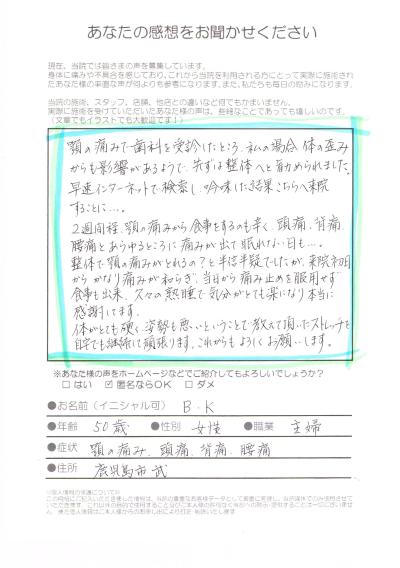 あなたの感想をお聞かせください
現在、当院では皆さまの声を募集しています。
身体に痛みや不具合を感じており、これから当院を利用される方にとって実際に施術され
たあなた様の率直な声が何よりも参考になります。また、私たちも毎日の励みになります。
当院の施術、スタッフ、店舗、他店との違いなど何でもかまいません。
実際に施術を受けていただいたあなた様の声は、些細なことであっても嬉しいのです。
(文章でもイラストでも大歓迎です!)
顎の痛みで歯科を受診したところ、私の場合 体の歪み
からも影響があるようで、先ずは整体へと勧められました。
早速インターネットで検索し、吟味した結果こちらへ来院
することに…。
2週間程、顎の痛みから食事をするのも辛く、頭痛、背痛、
腰痛とあらゆるところに痛みが出て眠れない日も…。
整体で顎の痛みがとれるの?と半信半疑でしたが、来院初日
からかなり痛みが和らぎ、当日から痛み止めを服用せず
食事も出来、久々の熟睡で気分がとても楽になり本当に
感謝してます。
体がとても硬く姿勢も悪いということで教えて頂いたストレッチを
自宅でも継続に頑張ります。これからもよろしくお願いします。
※あなた様の声をホームページなどでご紹介してもよろしいでしょうか?
□ はい ☑ 匿名ならOK □ ダメ
●お名前(イニシャル可) B・K
●年齢 50歳 ●性別 女性 ●職業 主婦
●症状 顎の痛み、頭痛、背痛、腰痛
●住所 鹿児島市 武